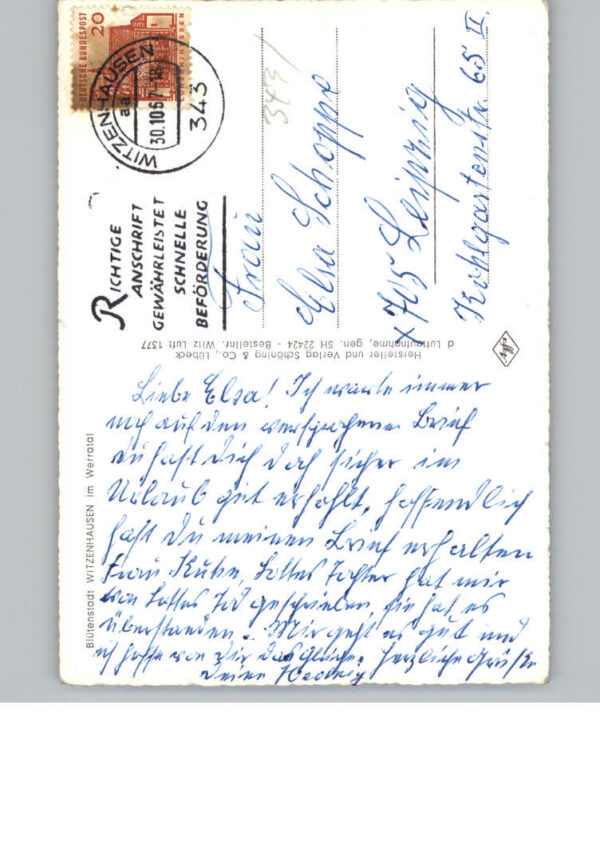 DEUTSCHE BUNDESPOST
20
WITZENHAUSEN
aa
30.10.67
343
RICHTIGE
ANSCHRIFT
GEWÄHRLEISTET
SCHNELLE
BEFÖRDERUNG
Frau
Elsa Schoppe
x 705 Leipzig
Kohlgartenstr. 65 II.
Hersteller und Verlag Schöning & Co., Lübeck
d Luftaufnahme, gen. SH 22424 - Bestellnr. Witz Luft 1377
Agfa
Blütenstadt WITZENHAUSEN im Werratal
Liebe Elsa! Ich warte immer
noch auf den versprochenen Brief
du hast Dich doch sicher im
Urlaub gut erhohlt, hoffendlich
hast Du meinen Brief erhalten
Frau Kuhn, Lottes Tochter hat mir
von Lottes Tod geschrieben, sie hat es
überstanden. Mir geht es gut und
ich hoffe von Dir das Gleiche. Herzliche Grüße
Deine Hedwig